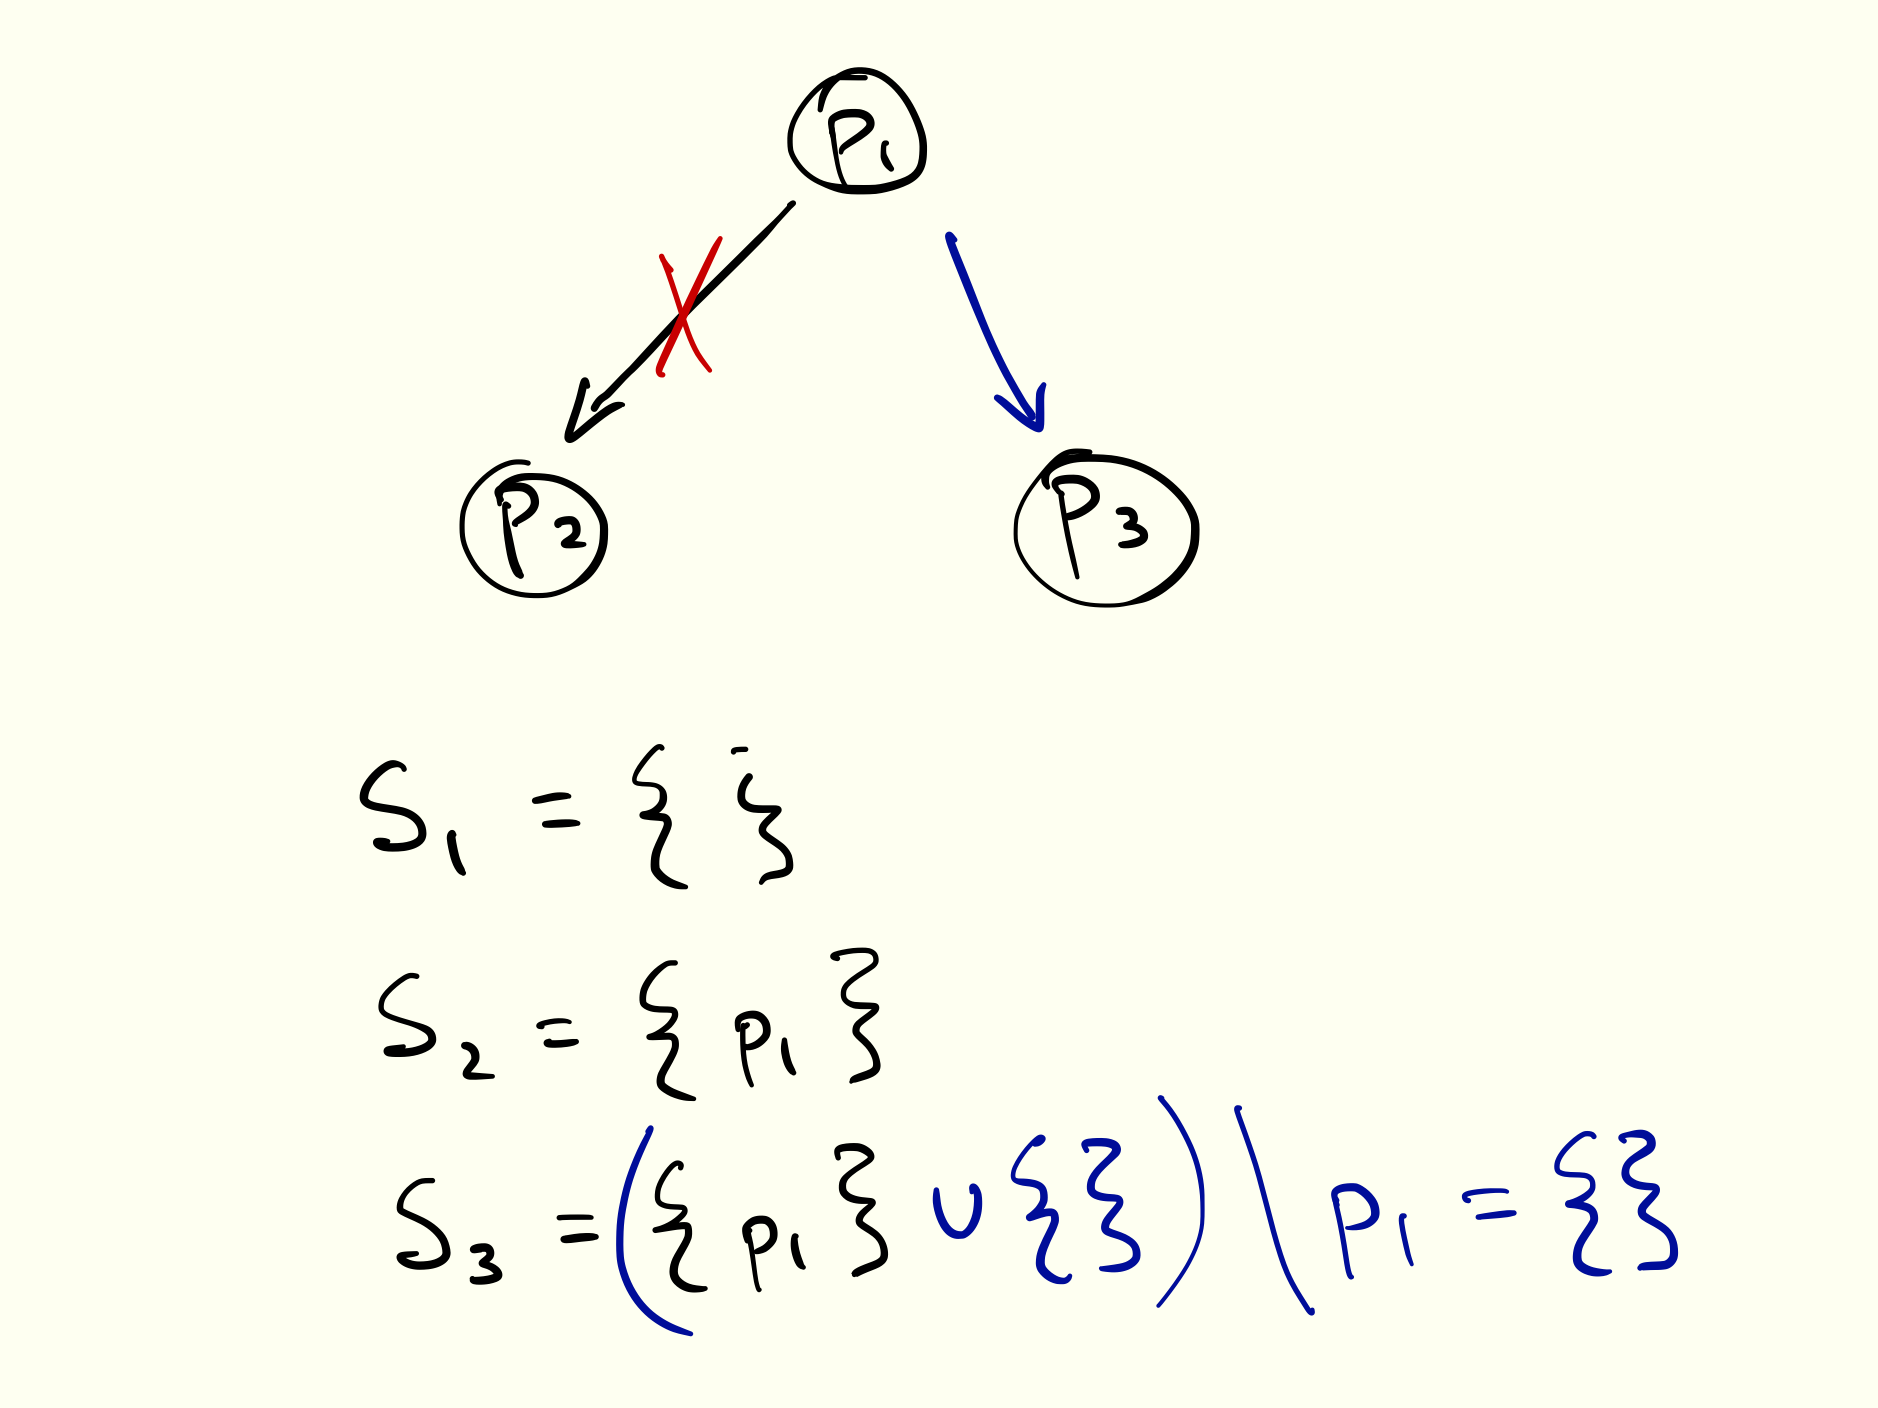 P₁
P₂ P₃
S₁ = { }
S₂ = { p₁ }
S₃ = ({ p₁ } ∪ {}) \ p₁ = {}